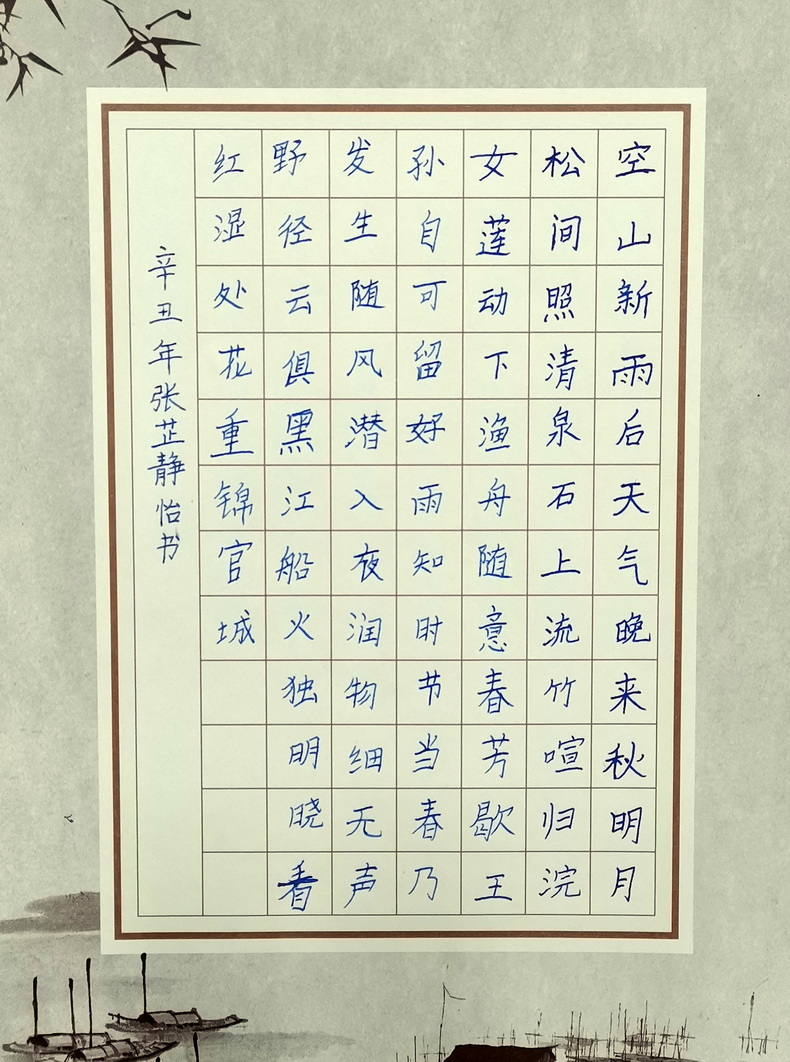 空山新雨后天气晚来秋明月
松间照清泉石上流竹喧归浣
女莲动下渔舟随意春芳歇王
孙自可留好雨知时节当春乃
发生随风潜入夜润物细无声
野径云俱黑江船火独明晓看
红湿处花重锦官城
辛丑年张芷静怡书